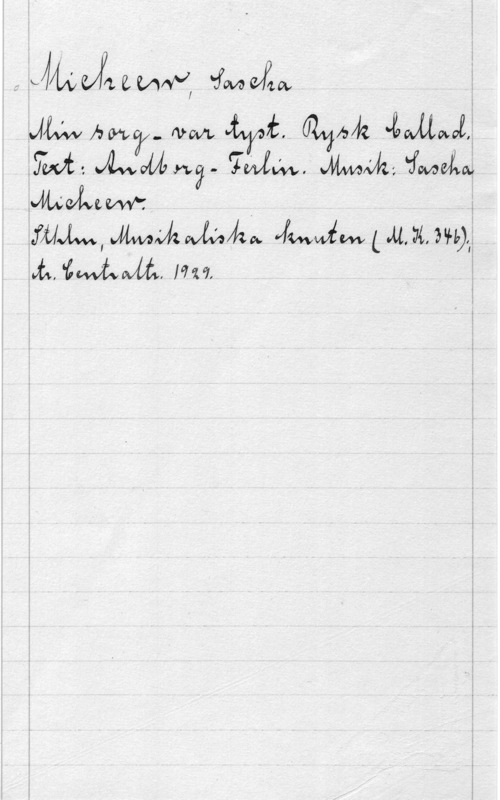 Micheew, Sascha
Min sorg - var tyst. Rysk ballad.
Text: Andborg - Ferlin. Musik: Sascha
Micheew.
Sthlm, Musikaliska knuten (M.K. 346);
tr. Centraltr. 1929.